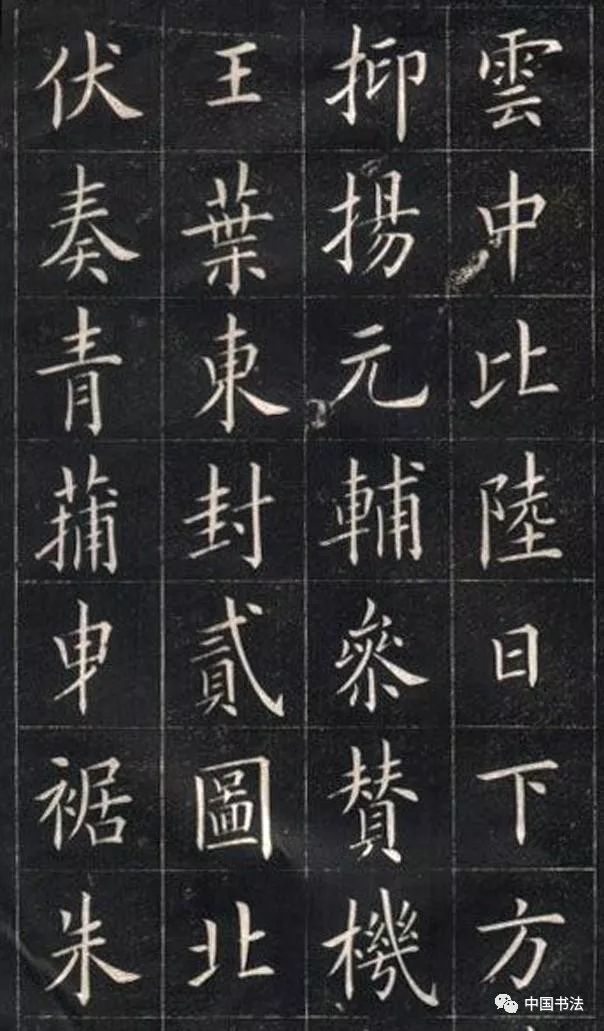 雲中比陸日下方
抑揚元輔叅賛機
王葉東封貳圖北
伏奏青蒲曳裾朱
中国书法